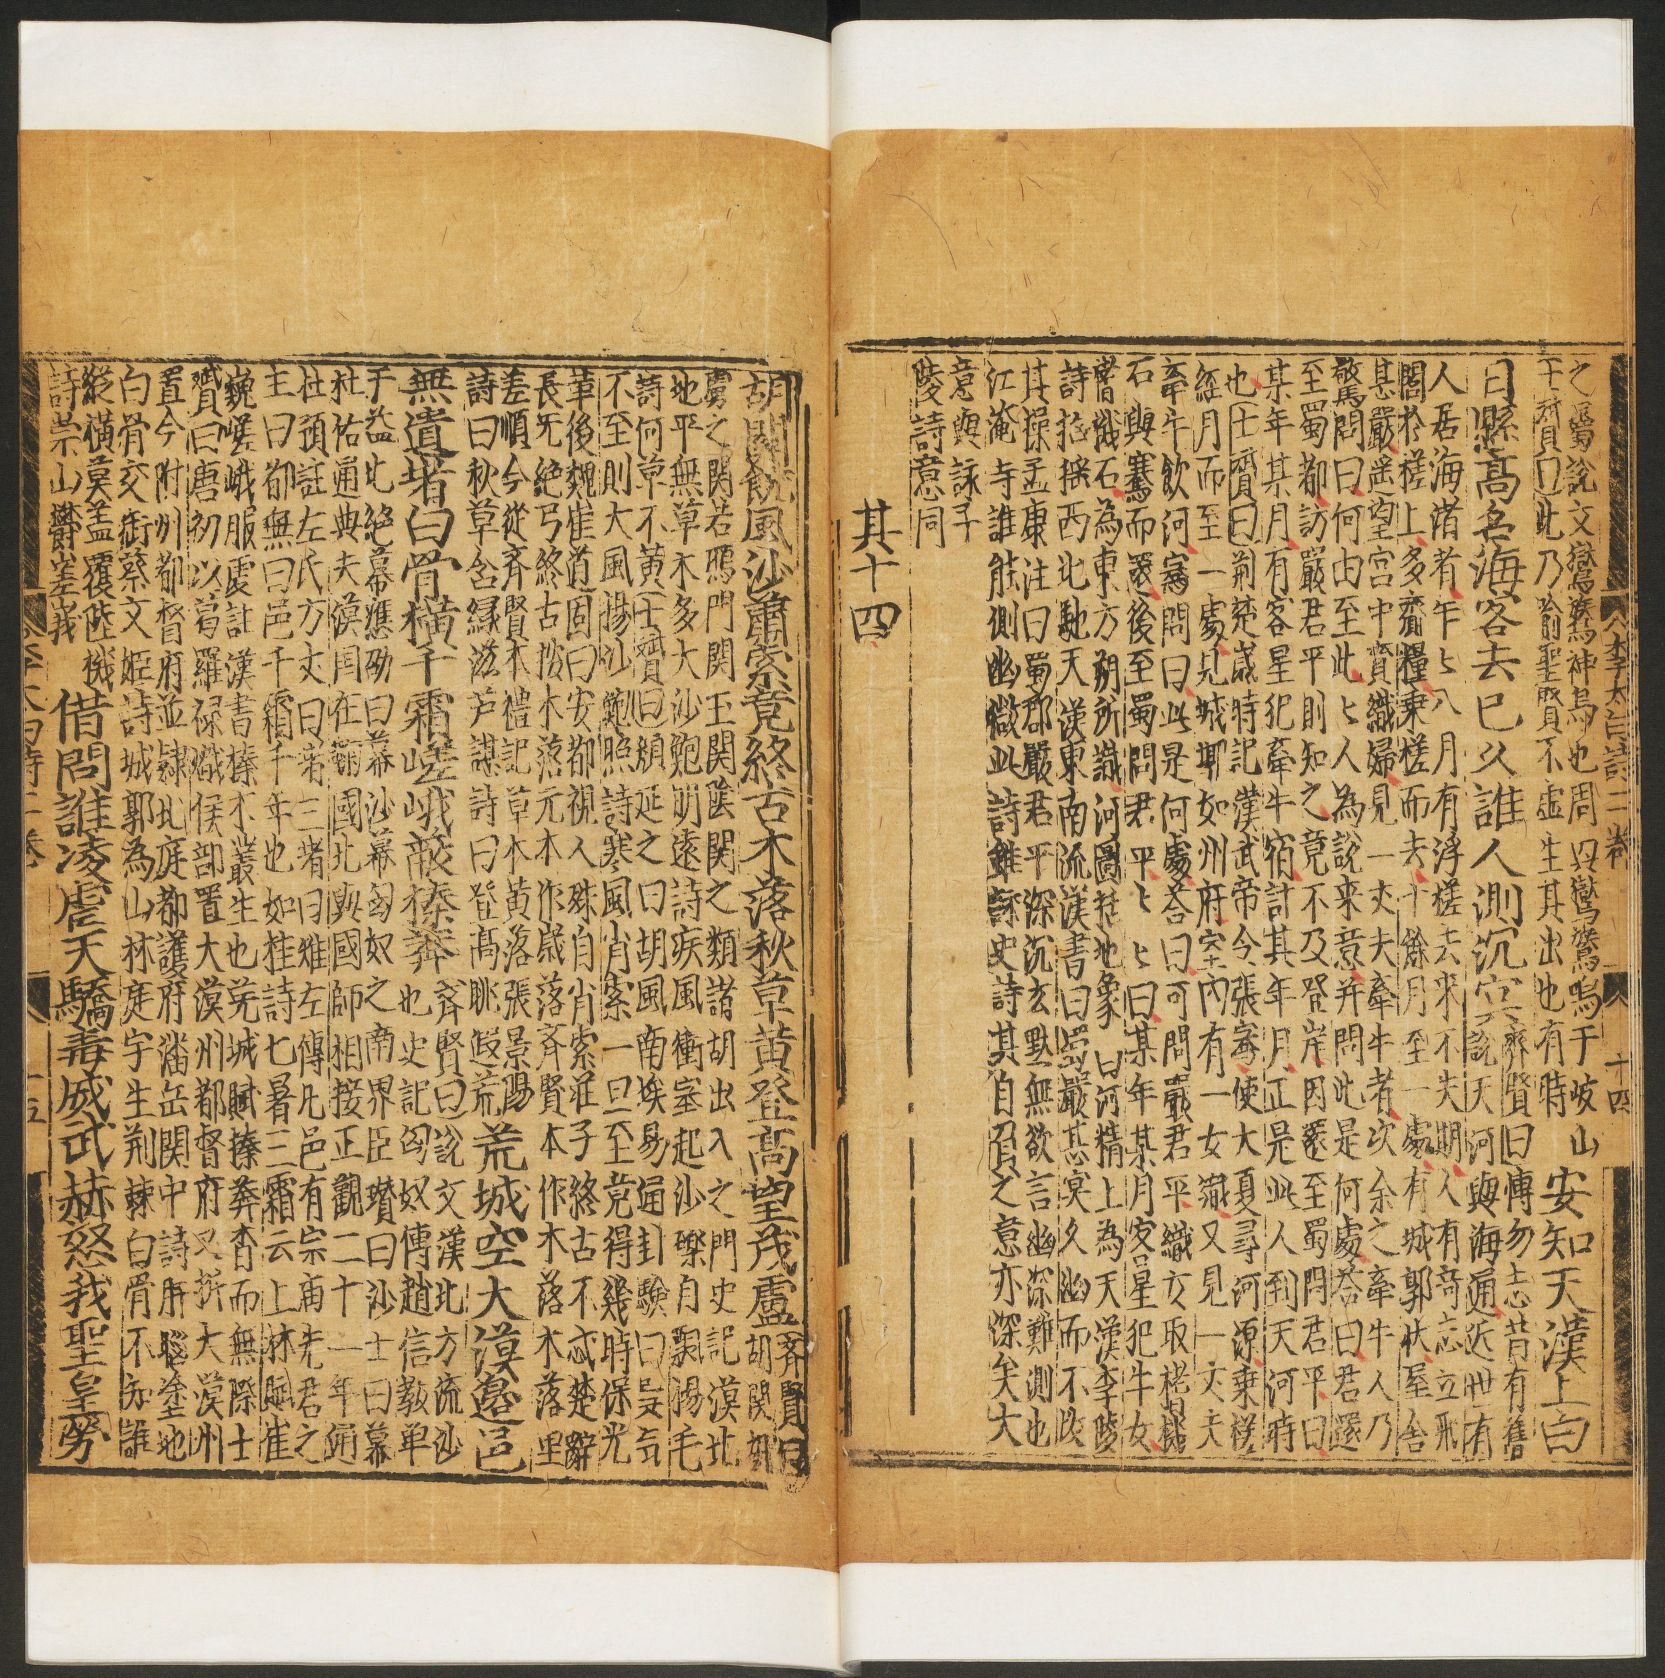 李太白詩二卷 十四
之屬說文鸑鷟神鳥也周興鸑鷟鳴于岐山
士贇曰此乃喻聖賢不虛生其出也有時
安知天漢上白
日懸高名海客去已久誰人測沉冥
齊賢曰傳勿志昔有舊
說天河與海通近世有
人居海渚者年〻八月有浮槎去來不失期人有奇志立飛
閣於槎上多齎糧乗槎而去十餘月至一處有城郭狀屋舍
甚嚴遥望宮中有織婦見一丈夫牽牛者次余之牽牛人乃
驚問曰何由至此〻人為說來意并問此是何處荅曰君還
至蜀都訪嚴君平則知之竟不及登岸因還至蜀問君平曰
某年某月有客星犯牽牛宿計其年月正是此人到天河時
也士贇曰荊楚歲時記漢武帝令張騫使大夏尋河源乗槎
經月而至一處見城郭如州府室內有一女織又見一丈夫
牽牛飲河騫問曰此是何處荅曰可問嚴君平織女取榰機
石與騫而還後至蜀問君平〻〻曰某年某月客星犯牛女
榰機石為東方朔所識河圖括地象曰河精上為天漢李陵
詩招摇西北馳天漢東南流漢書曰蜀嚴甚冥久幽而不改
其操孟康注曰蜀郡嚴君平深沉玄黙無欲言幽深難測也
江淹寺誰能側幽微此詩雖詠史詩其自負之意亦深矣大
意與詠子
陵詩意同
其十四
胡關饒風沙蕭索竟終古木落秋草黄登高望戎虜
齊賢曰
胡關胡
虜之関若鴈門関玉関陰関之類諸胡出入之門史記漠北
地平無草木多大沙鮑明遠詩疾風衝塞起沙礫自飄揚毛
詩何草不黄士贇曰顔延之曰胡風南埃易通卦驗曰巽気
不至則大風揚沙鮑照詩寒風肖索一旦至竟得幾時保光
華後魏崔道固曰安都視人殊自肖索莊子終古不忒楚辭
長旡絶弓終古挍木落元本作歲落斉賢本作木落木落里
差順今從斉賢本禮記草木黄落張景陽
詩曰秋草含緑滋芦諶詩曰登高眺遐荒
荒城空大漠邉邑
無遺堵白骨横千霜嵯峨蔽榛莽
斉賢曰說文漢北方流沙
也史記匈奴傳趙信教单
于益北絶幕應劭曰幕沙幕匈奴之南界臣瓉曰沙士曰幕
杜佑通典夫漠囯在䪼國北與國師相接正觀二十一年通
杜預註左氏方丈曰堵三堵曰雉左傳凡邑有宗廟先君之
主曰都無曰邑千霜千年也如桂詩七暑三霜云上林賦崔
巍嵯峨服䖍註漢書榛木叢生也芜城賦榛莽杳而無際士
贇曰唐初以葛羅禄熾侯部置大漠州都督府又折大漠州
置今附州都督府並隷北庭都護府潘岳関中詩肝腦塗地
白骨交衢蔡文姬詩城郭為山林庭宇生荆棘白骨不知誰
縱横莫盖覆陸機
詩崇山欝嵳峩
借問誰凌虐天驕毒威武赫怒我聖皇勞
李太白詩二卷 十五